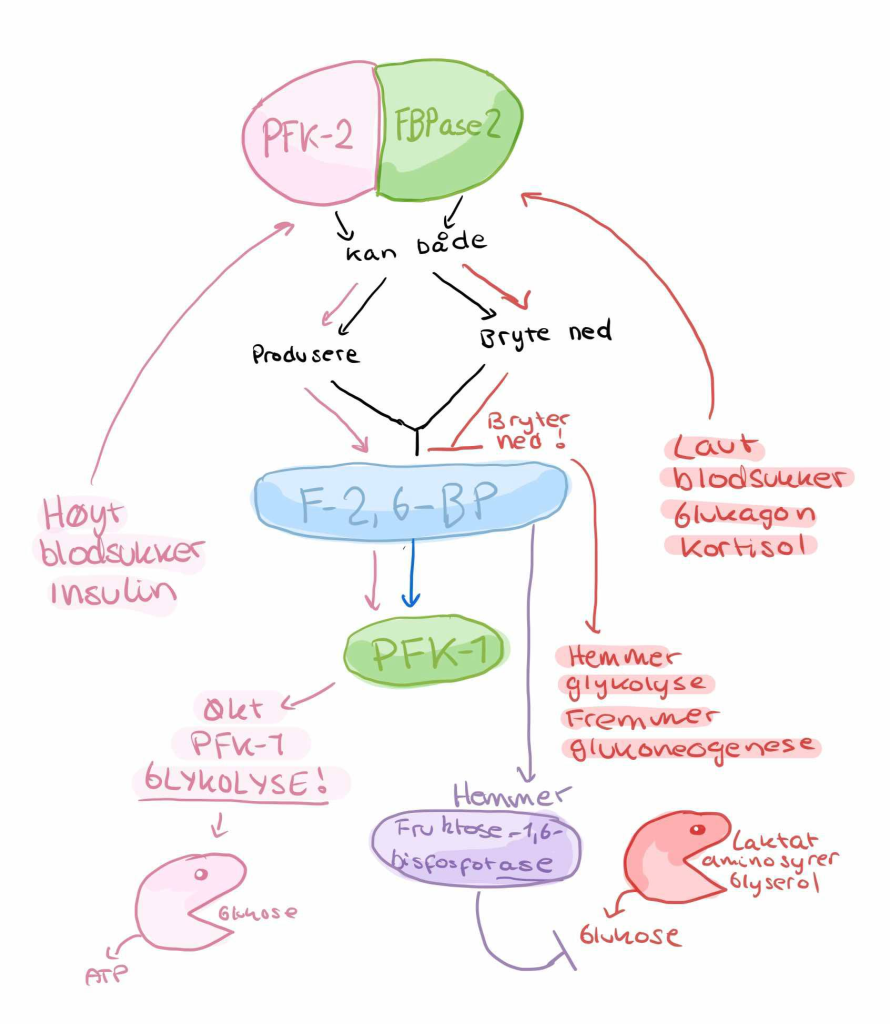 PFK-2
FBPase2
kan både
Produsere
Bryte ned
Bryter
ned!
F-2,6-BP
Høyt
blodsukker
insulin
Lavt
blodsukker
Glukagon
Kortisol
PFK-1
Økt
PFK-1
GLYKOLYSE!
Hemmer
glykolyse
Fremmer
glukoneogenese
Hemmer
Fruktose-1,6-
bisfosfotase
Glukose
ATP
Laktat
aminosyrer
Glyserol
Glukose